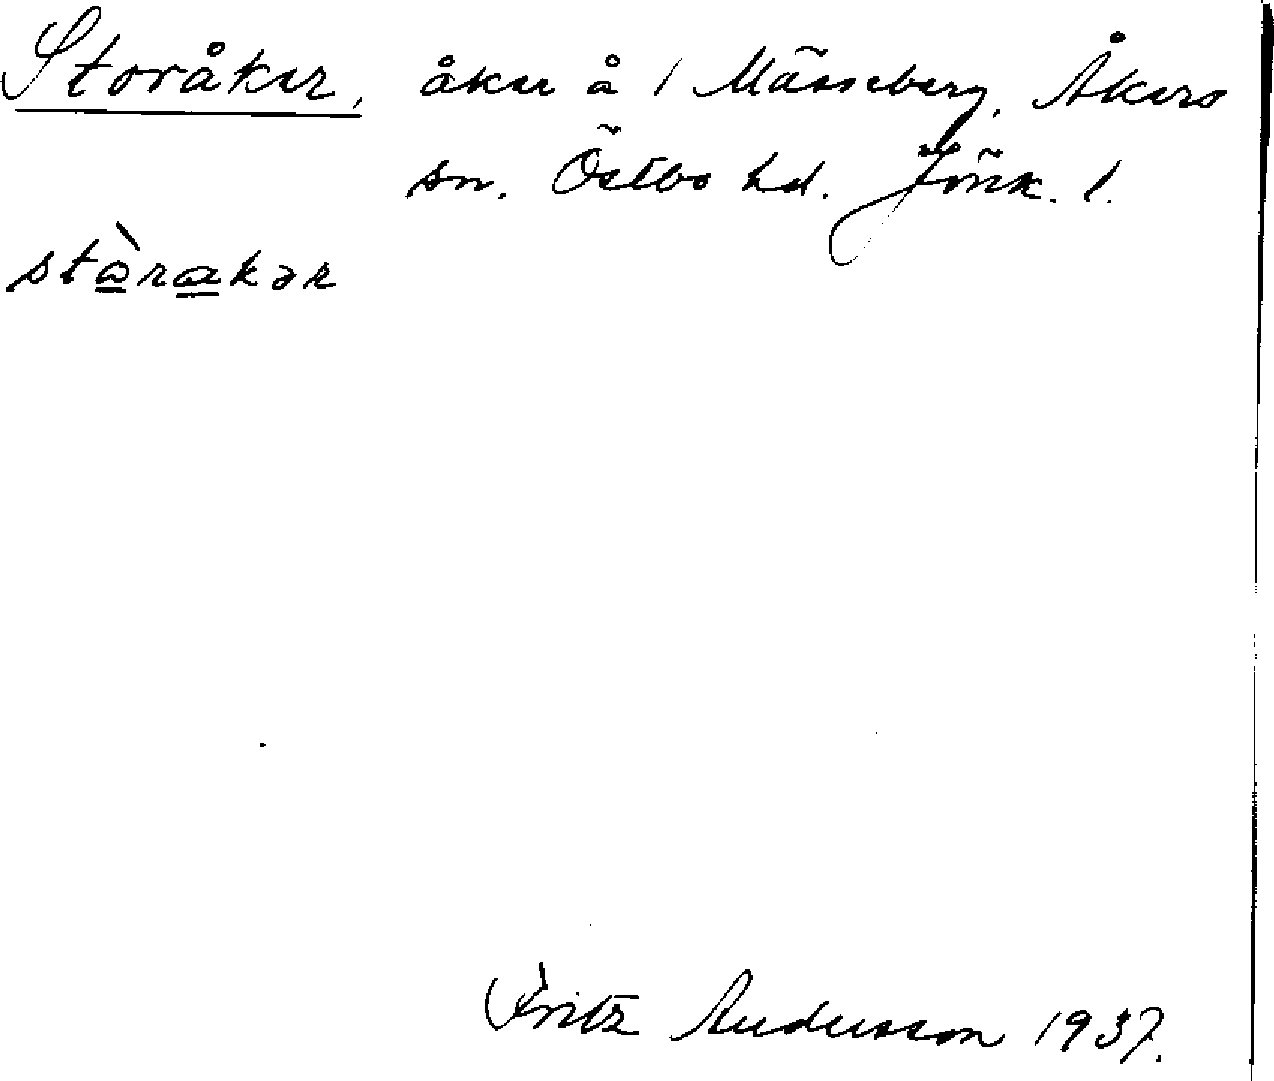 Storåker, åker å 1 Mässeberg, Åkers
sn. Östbo hd. Jönk. l.
stàrakər
Fritz Andersson 1937.